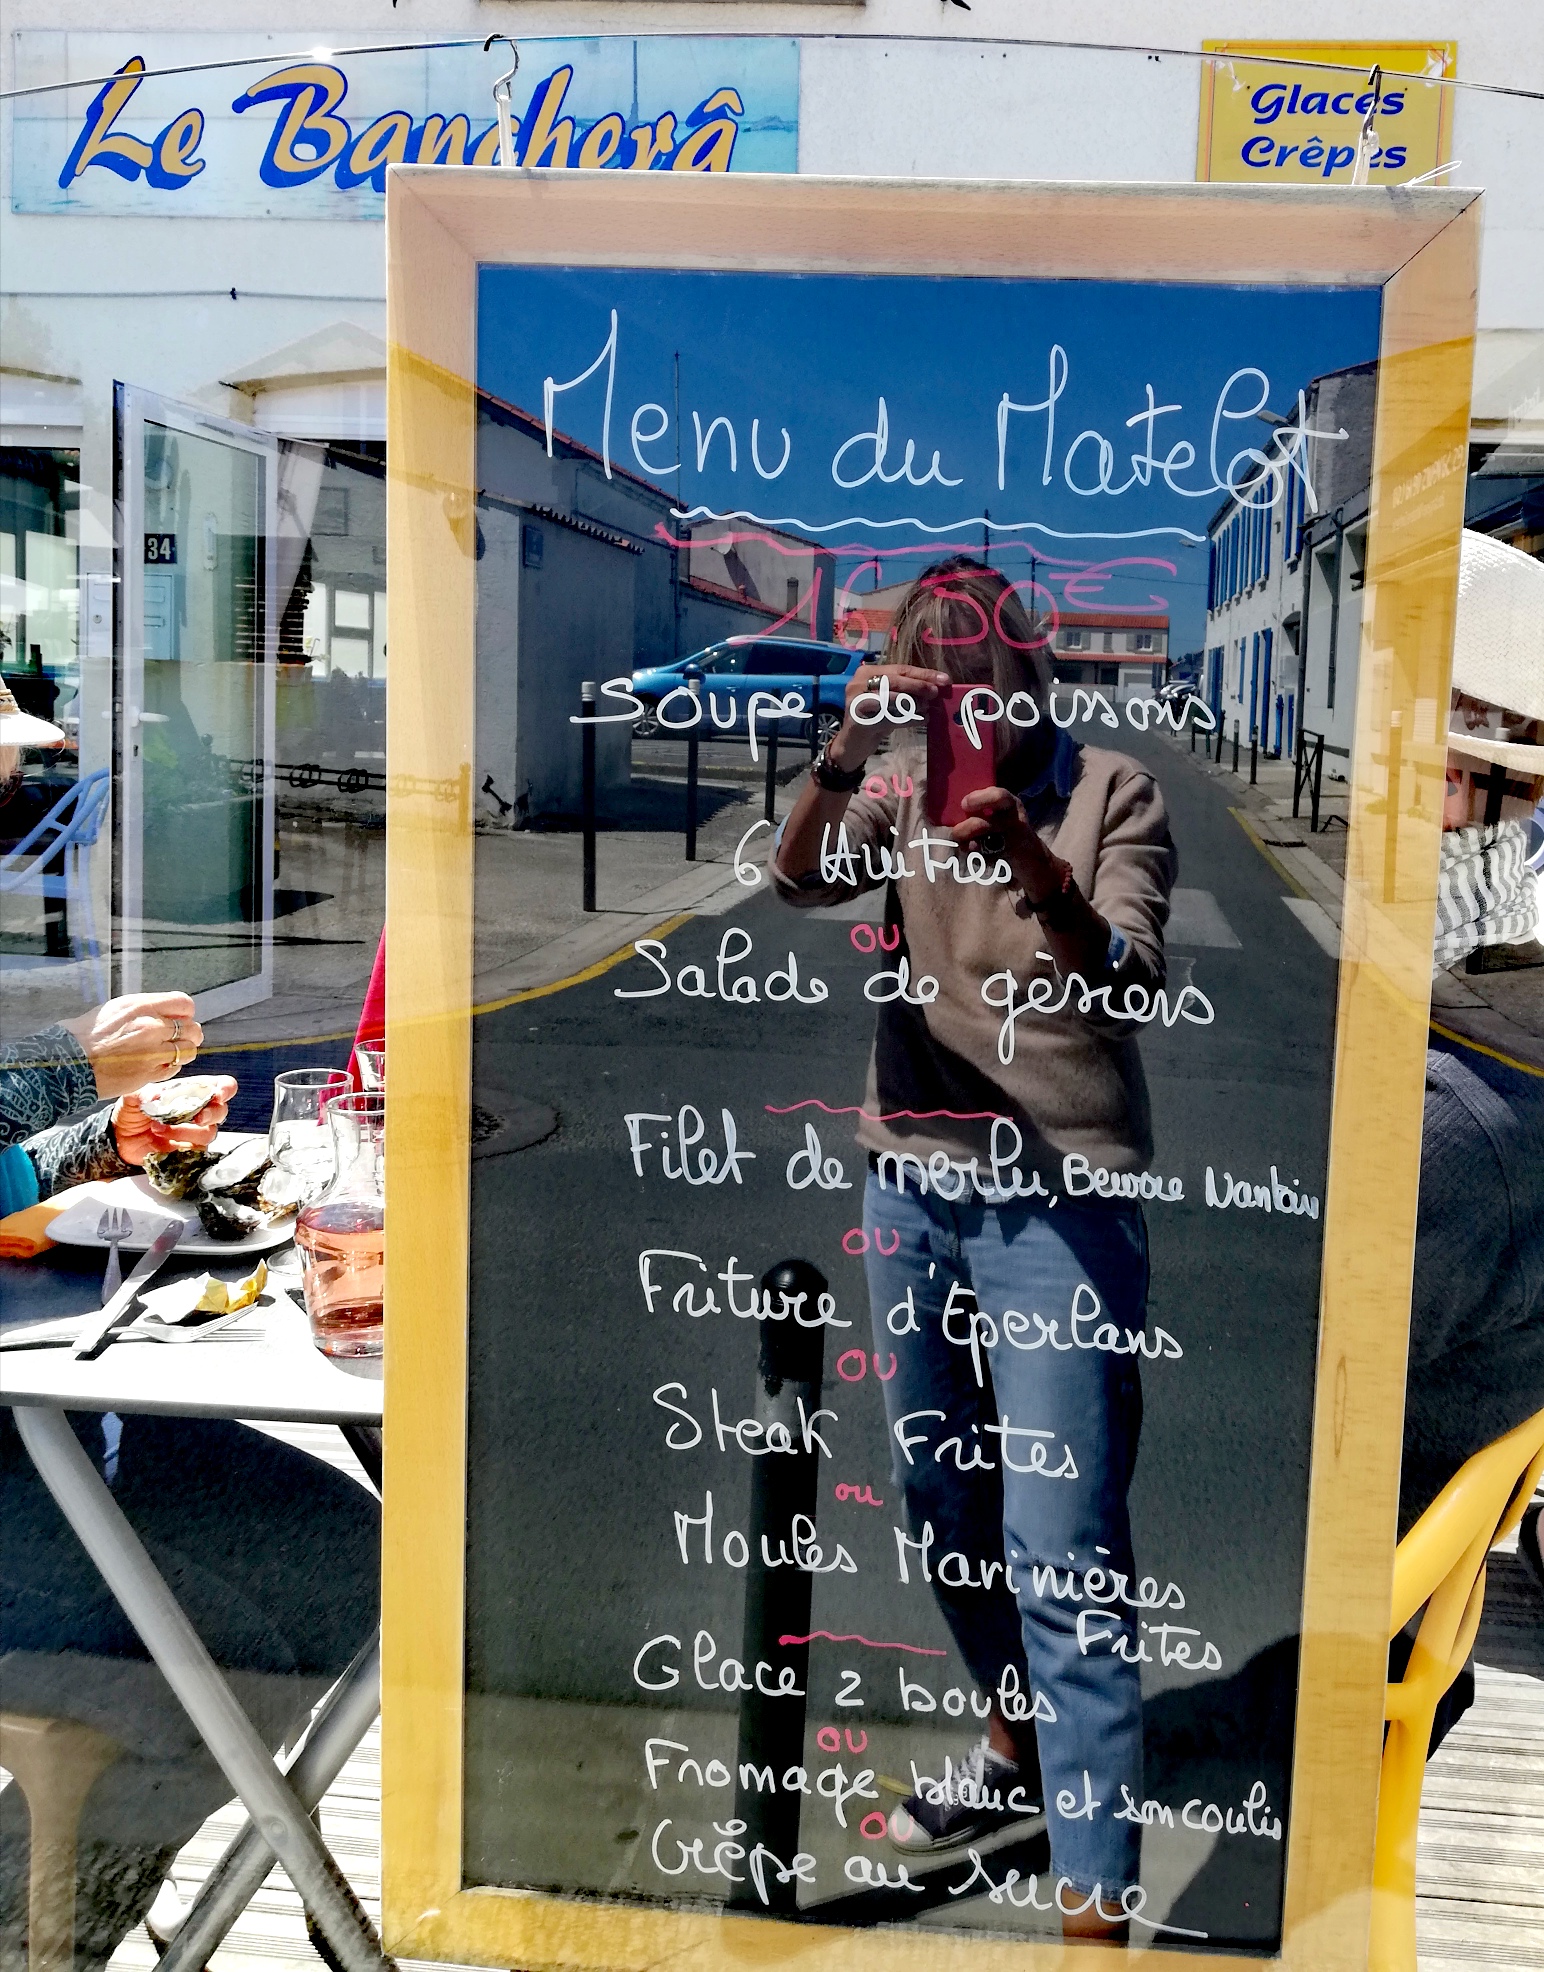 Le Bancherâ
Glaces
Crêpes
34
Menu du Matelot
16.50€
Soupe de poissons
ou
6 Huitres
ou
Salade de gésiers
Filet de merlu, Beurre Nantais
ou
Friture d'Eperlans
ou
Steak Frites
ou
Moules Marinières
Frites
Glace 2 boules
ou
Fromage blanc et son coulis
ou
Crêpe au sucre